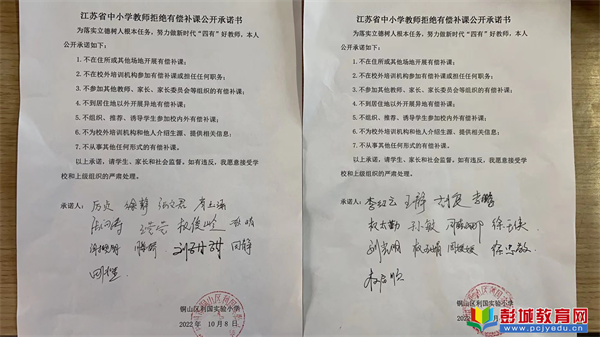 江苏省中小学教师拒绝有偿补课公开承诺书
为落实立德树人根本任务，努力做新时代“四有”好教师，本人
公开承诺如下：
1.不在住所或其他场地开展有偿补课；
2.不在校外培训机构参加有偿补课或担任任何职务；
3.不参加其他教师、家长、家长委员会等组织的有偿补课；
4.不到居住地以外开展异地有偿补课；
5.不组织、推荐、诱导学生参加校内外有偿补课；
6.不为校外培训机构和他人介绍生源、提供相关信息；
7.不从事其他任何形式的有偿补课。
以上承诺，请学生、家长和社会监督。如有违反，我愿意接受学
校和上级组织的严肃处理。
承诺人：
铜山区利国实验小学
2022年10月8日
江苏省中小学教师拒绝有偿补课公开承诺书
为落实立德树人根本任务，努力做新时代“四有”好教师，本人
公开承诺如下：
1.不在住所或其他场地开展有偿补课；
2.不在校外培训机构参加有偿补课或担任任何职务；
3.不参加其他教师、家长、家长委员会等组织的有偿补课；
4.不到居住地以外开展异地有偿补课；
5.不组织、推荐、诱导学生参加校内外有偿补课；
6.不为校外培训机构和他人介绍生源、提供相关信息；
7.不从事其他任何形式的有偿补课。
以上承诺，请学生、家长和社会监督。如有违反，我愿意接受学
校和上级组织的严肃处理。
承诺人：李红云 王静
孙敏
铜山区利国实验小学
2022
彭城教育网
http://www.pcjyedu.cn/